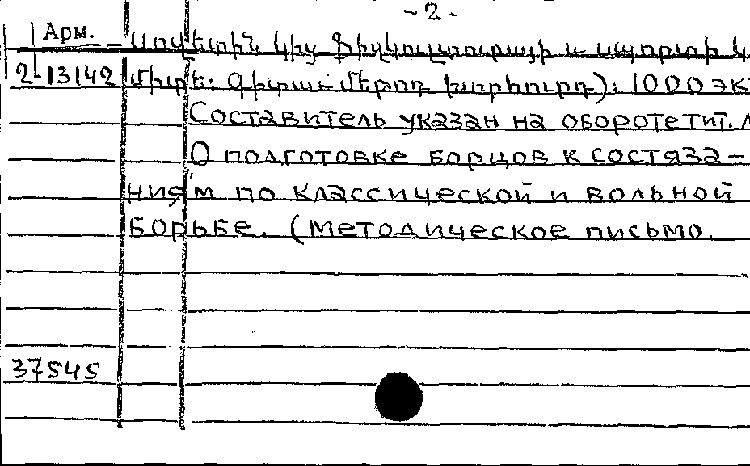 -2-
Арм.
սովետին կից Ֆիզկուլտուրայի և սպորտի կ
2-13142 միտե: Գիտամեթոդ խորհուրդ): 1000 эк
Составитель указан на обороте тит. л
О подготовке борцов к состяза-
ниям по классической и вольной
борьбе. (Методическое письмо.
37545